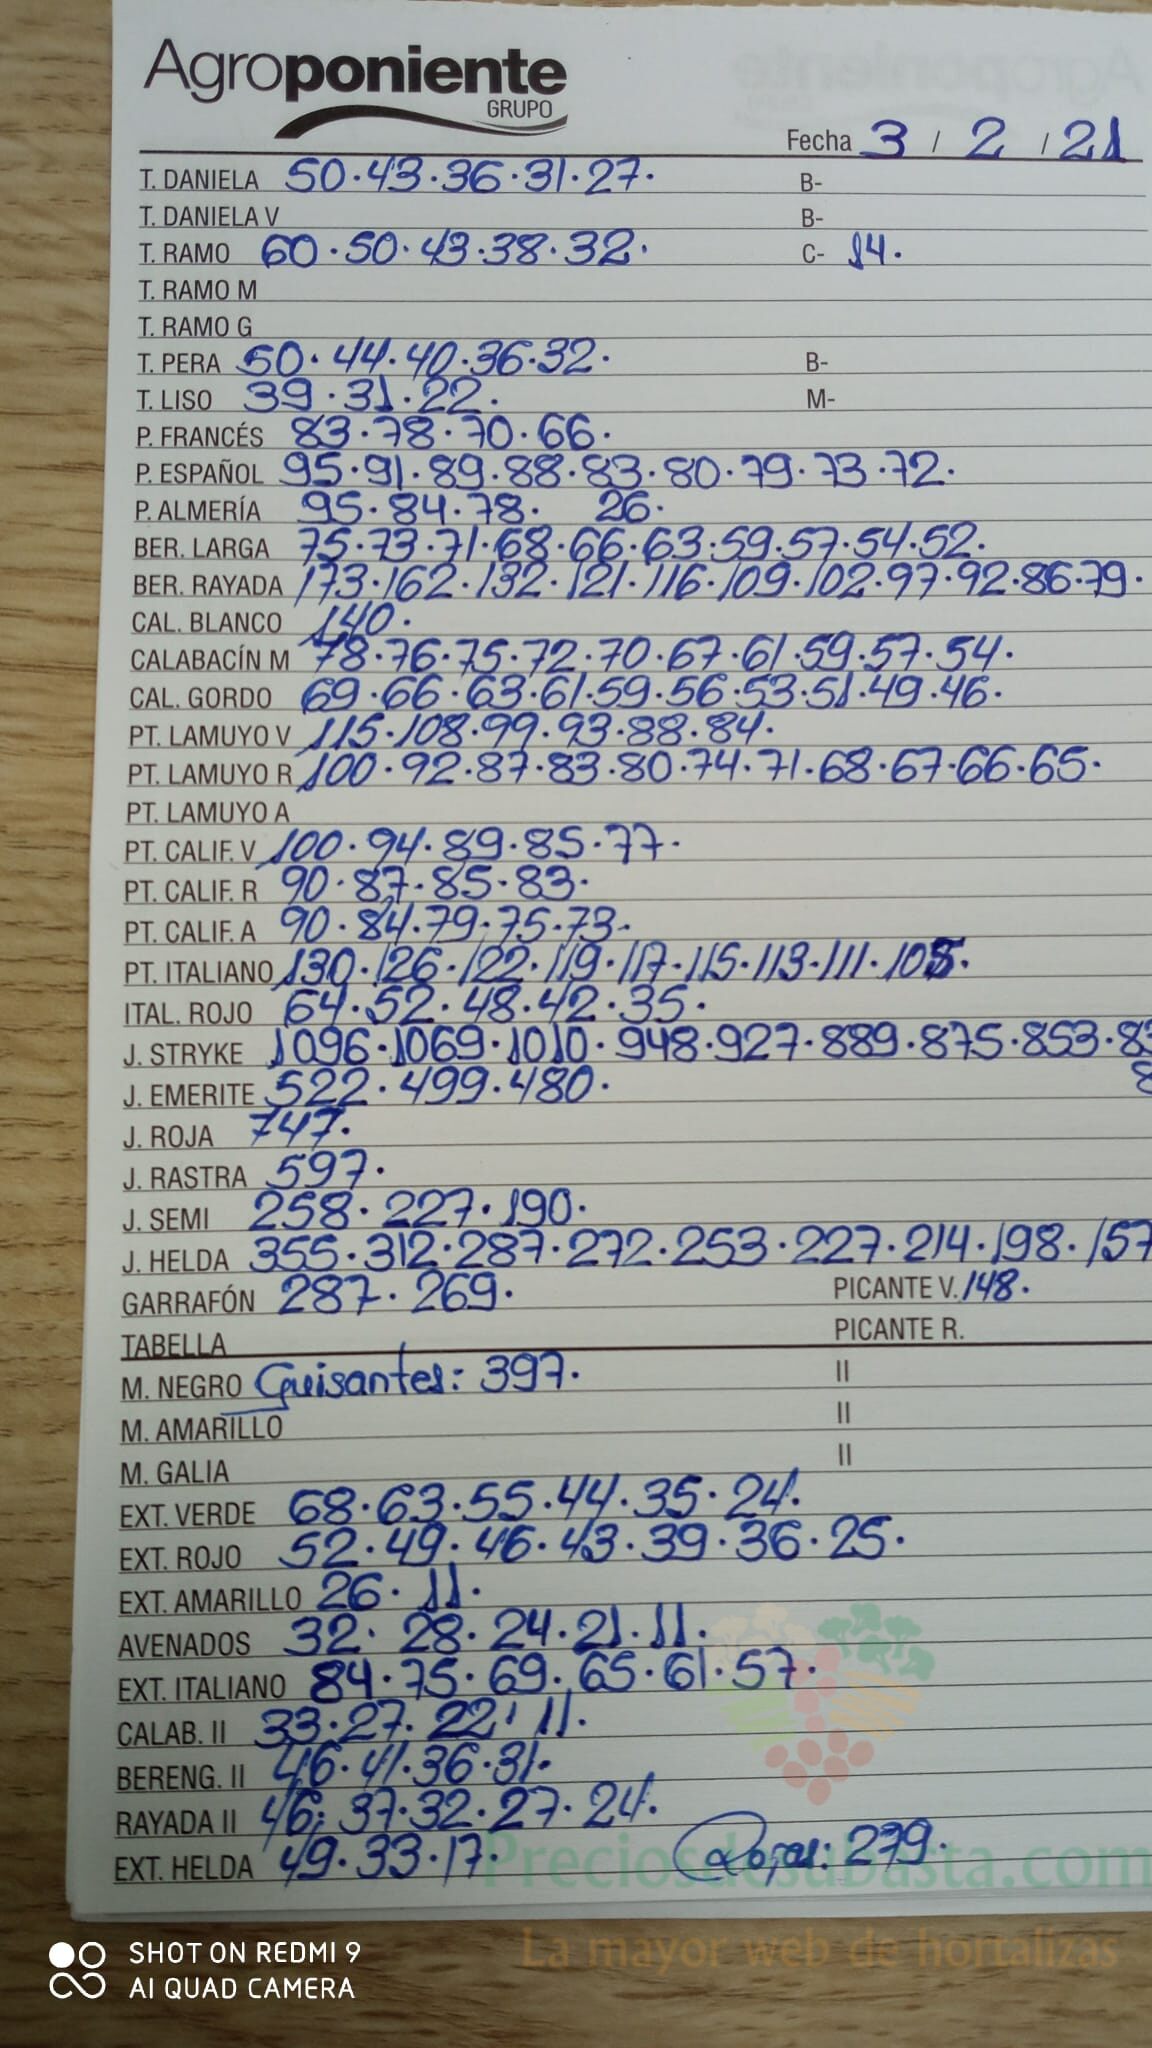 Agroponiente
GRUPO
Fecha 3 / 2 / 21
T. DANIELA 50.43.36.31.27. B-
T. DANIELA V B-
T. RAMO 60.50.43.38.32. C- 14.
T. RAMO M
T. RAMO G
T. PERA 50.44.40.36.32. B-
T. LISO 39.31.22. M-
P. FRANCÉS 83.78.70.66.
P. ESPAÑOL 95.91.89.88.83.80.79.73.72.
P. ALMERÍA 95.84.78. 26.
BER. LARGA 75.73.71.68.66.63.59.57.54.52.
BER. RAYADA 173.162.132.121.116.109.102.97.92.86.79.
CAL. BLANCO 140.
CALABACÍN M 78.76.75.72.70.67.61.59.57.54.
CAL. GORDO 69.66.63.61.59.56.53.51.49.46.
PT. LAMUYO V 115.108.99.93.88.84.
PT. LAMUYO R 100.92.87.83.80.74.71.68.67.66.65.
PT. LAMUYO A
PT. CALIF. V 100.94.89.85.77.
PT. CALIF. R 90.87.85.83.
PT. CALIF. A 90.84.79.75.73.
PT. ITALIANO 130.126.122.119.117.115.113.111.108.
ITAL. ROJO 64.52.48.42.35.
J. STRYKE 1096.1069.1010.948.927.889.875.853.83
J. EMERITE 522.499.480. 8
J. ROJA 747.
J. RASTRA 597.
J. SEMI 258.227.190.
J. HELDA 355.312.287.272.253.227.214.198.157
GARRAFÓN 287.269. PICANTE V. 148.
TABELLA PICANTE R.
M. NEGRO Guisantes: 397. II
M. AMARILLO II
M. GALIA II
EXT. VERDE 68.63.55.44.35.24.
EXT. ROJO 52.49.46.43.39.36.25.
EXT. AMARILLO 26.11.
AVENADOS 32.28.24.21.11.
EXT. ITALIANO 84.75.69.65.61.57.
CALAB. II 33.27.22.11.
BERENG. II 46.41.36.31.
RAYADA II 46.37.32.27.24.
EXT. HELDA 49.33.17. Rojas: 279.
Preciosdesubasta.com
La mayor web de hortalizas
SHOT ON REDMI 9
AI QUAD CAMERA